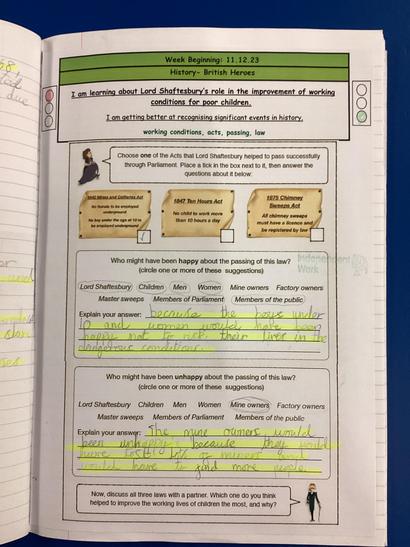 Week Beginning: 11.12.23
History- British Heroes
I am learning about Lord Shaftesbury's role in the improvement of working
conditions for poor children.
I am getting better at recognising significant events in history.
working conditions, acts, passing, law
Choose one of the Acts that Lord Shaftesbury helped to pass successfully
through Parliament. Place a tick in the box next to it, then answer the
questions about it below.
1842 Mines and Collieries Act
No female to be employed
underground
No boy under the age of 10 to
be employed underground
1847 Ten Hours Act
No child to work more
than 10 hours a day
1875 Chimney
Sweeps Act
All chimney sweeps
must have a licence and
be registered by law
Independent
Work
Who might have been happy about the passing of this law?
(circle one or more of these suggestions)
Lord Shaftesbury Children Men Women Mine owners Factory owners
Master sweeps Members of Parliament Members of the public
Explain your answer: because the boys under
10 and women would have been
happy not to risk their lives in the
dangerous conditions.
Who might have been unhappy about the passing of this law?
(circle one or more of these suggestions)
Lord Shaftesbury Children Men Women Mine owners Factory owners
Master sweeps Members of Parliament Members of the public
Explain your answer: The mine owners would
been unhappy because they would
have lost lots of miners and
would have to find more people.
Now, discuss all three laws with a partner. Which one do you think
helped to improve the working lives of children the most, and why?